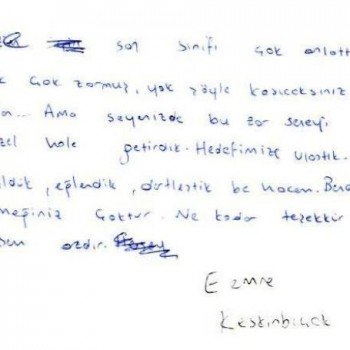 son sınıfı çok anlatt
çok zormuş, yok şöyle kasıcaksınız
Ama sayenizde bu zor sereyi
zel hale getirdik. Hedefimize ulaştık.
ldük, eğlendik, dertleştik be hocam. Ben
meğiniz çoktur. Ne kadar teşekkür
sem azdır.
Emre
Keskinbıçak